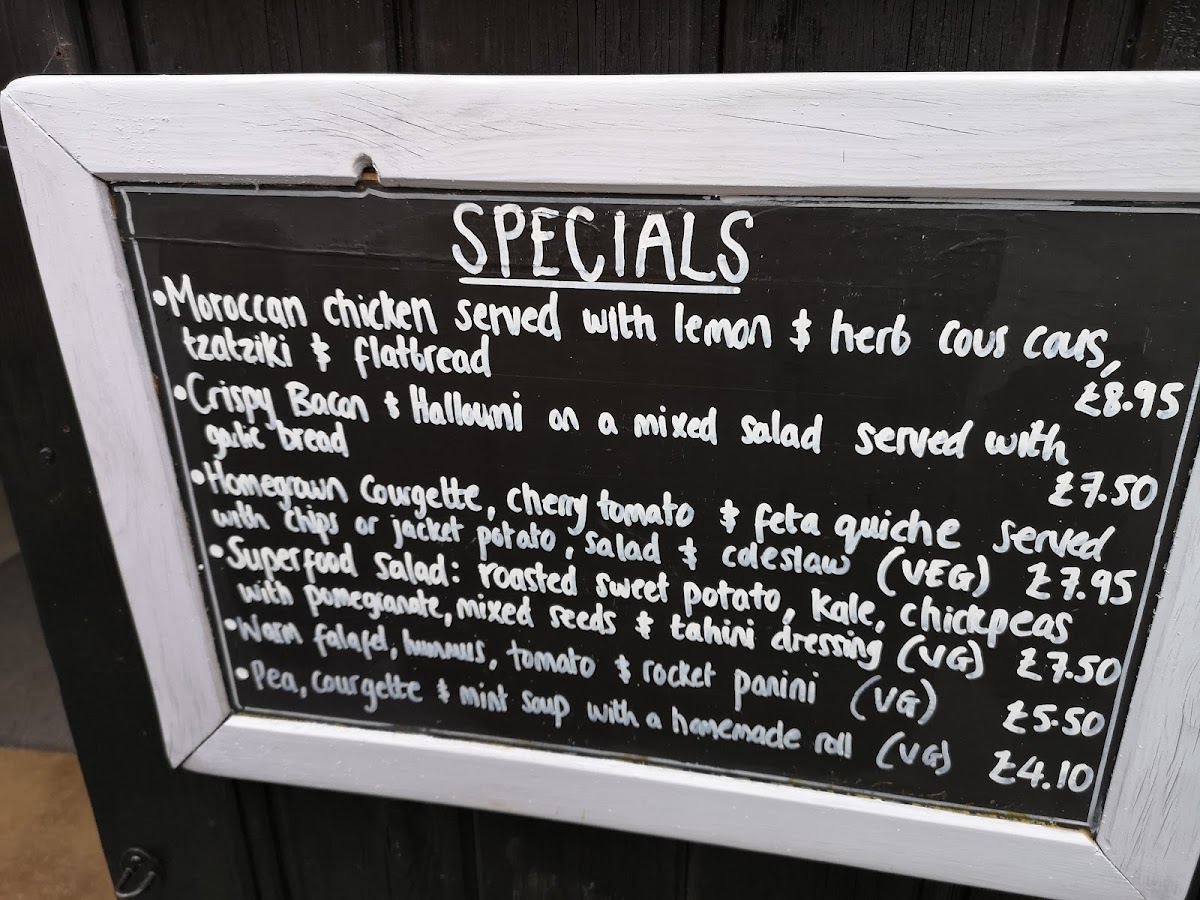 SPECIALS
•Moroccan chicken served with lemon & herb cous cous,
tzatziki & flatbread £8.95
•Crispy Bacon & Halloumi on a mixed salad served with
garlic bread £7.50
•Homegrown Courgette, cherry tomato & feta quiche served
with chips or jacket potato, salad & coleslaw (VEG) £7.95
•Superfood Salad: roasted sweet potato, kale, chickpeas
with pomegranate, mixed seeds & tahini dressing (VG) £7.50
•Warm falafel, hummus, tomato & rocket panini (VG) £5.50
•Pea, courgette & mint soup with a homemade roll (VG) £4.10